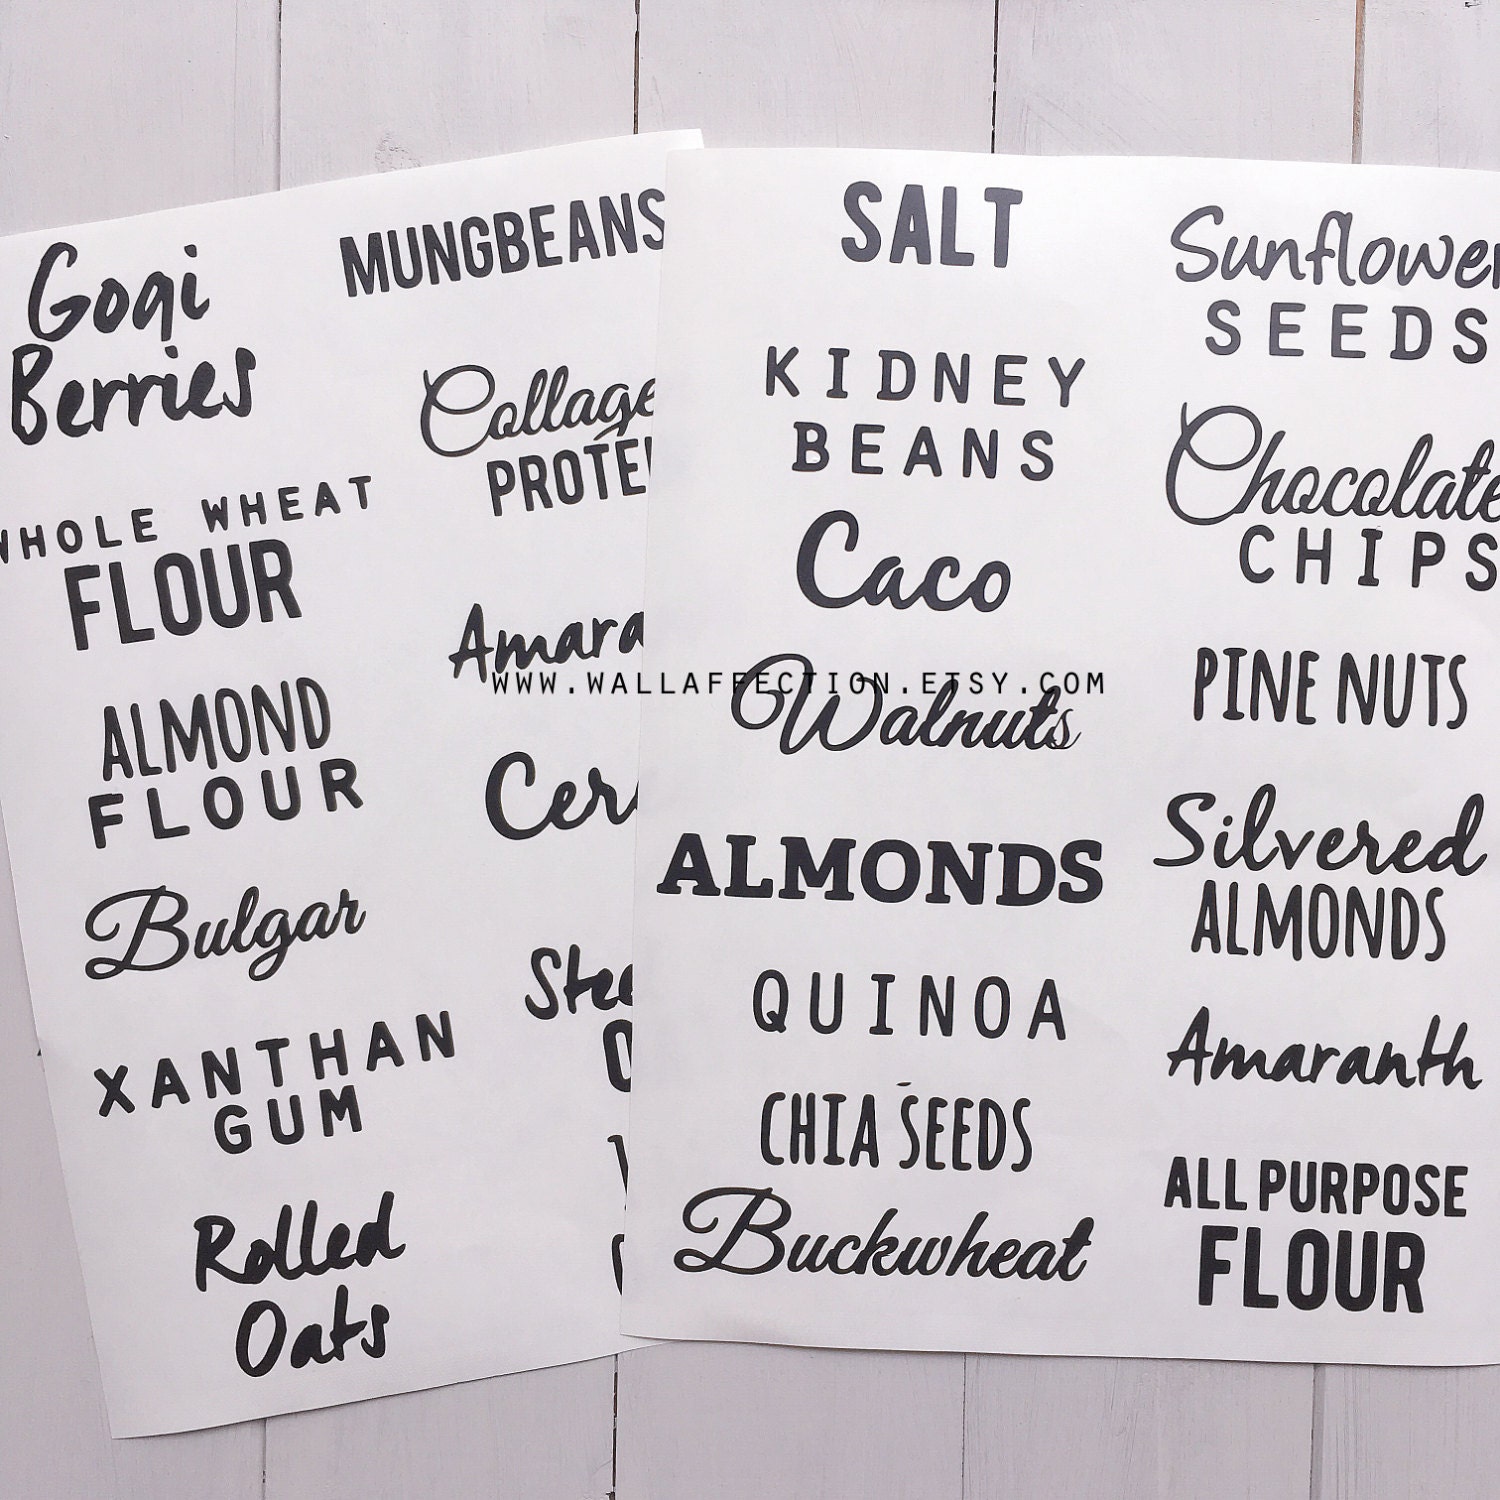 Gogi
Berries
WHOLE WHEAT
FLOUR
ALMOND
FLOUR
Bulgar
XANTHAN
GUM
Rolled
Oats
MUNGBEANS
Collage
PROTE
Amara
Cer
Stee
SALT
KIDNEY
BEANS
Caco
WWW.WALLAFFECTION.ETSY.COM
Walnuts
ALMONDS
QUINOA
CHIA SEEDS
Buckwheat
Sunflower
SEEDS
Chocolate
CHIPS
PINE NUTS
Silvered
ALMONDS
Amaranth
ALL PURPOSE
FLOUR